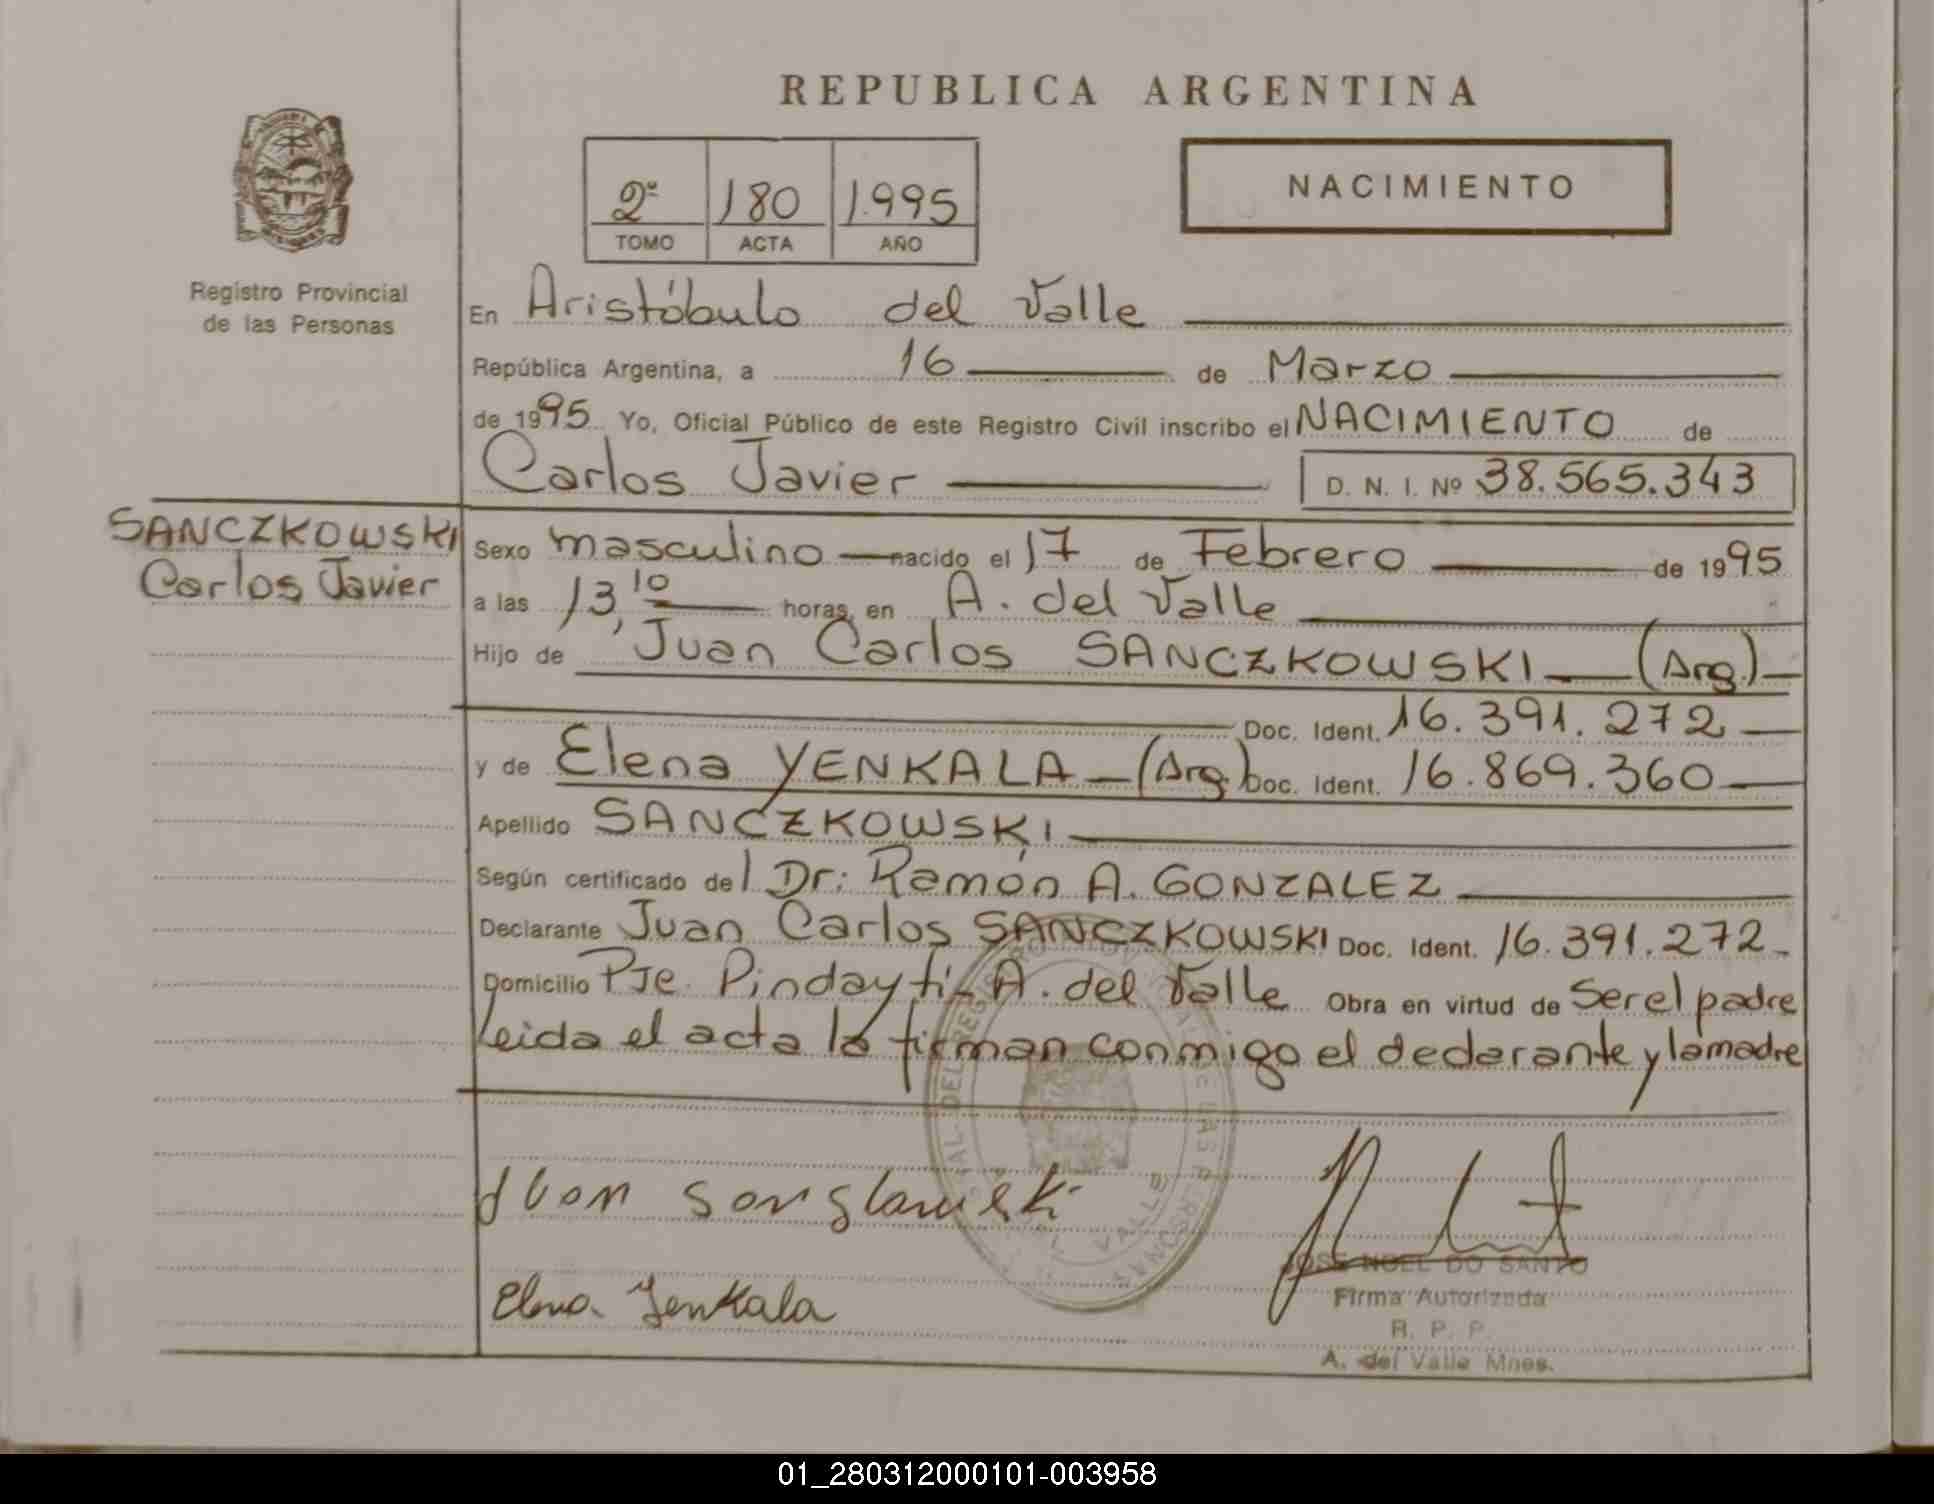 REPUBLICA ARGENTINA
2º 180 1.995
TOMO ACTA AÑO
NACIMIENTO
Registro Provincial
de las Personas
En Aristóbulo del Valle
República Argentina, a 16 de Marzo
de 1995 Yo, Oficial Público de este Registro Civil inscribo el NACIMIENTO de
Carlos Javier D. N. I. Nº 38.565.343
SANCZKOWSKI
Carlos Javier
Sexo masculino nacido el 17 de Febrero de 1995
a las 13,10 horas, en A. del Valle
Hijo de Juan Carlos SANCZKOWSKI (Arg.)
Doc. Ident. 16.391.272
y de Elena YENKALA (Arg.) Doc. Ident. 16.869.360
Apellido SANCZKOWSKI
Según certificado del Dr: Ramón A. GONZALEZ
Declarante Juan Carlos SANCZKOWSKI Doc. Ident. 16.391.272
Domicilio Pje. Pindayti- A. del Valle Obra en virtud de Ser el padre
Leida el acta la firman conmigo el declarante y la madre
Juan
Elena Yenkala
JOSE NOEL DO SANTO
Firma Autorizada
R. P. P.
A. del Valle Mnes.
01_280312000101-003958